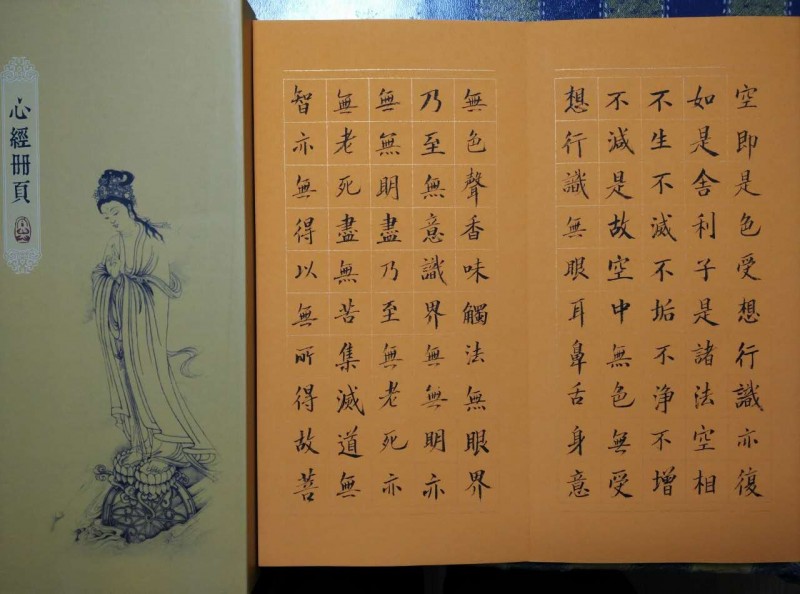 空即是色受想行識亦復
如是舍利子是諸法空相
不生不滅不垢不淨不增
不減是故空中無色無受
想行識無眼耳鼻舌身意
無色聲香味觸法無眼界
乃至無意識界無無明亦
無無明盡乃至無老死亦
無老死盡無苦集滅道無
智亦無得以無所得故菩
心經冊頁